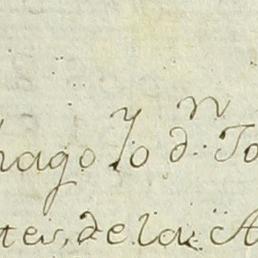 hago Yo d.n To
tes, de la A